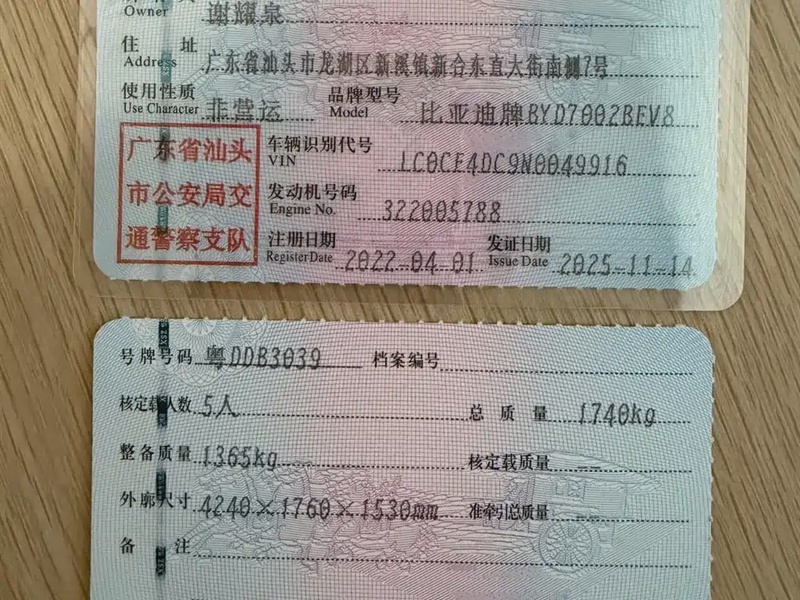 Owner 谢耀泉
住 址
Address 广东省汕头市龙湖区新溪镇新合东直大街南侧7号
使用性质 品牌型号
Use Character 非营运 Model 比亚迪牌BYD7002BEV8
广东省汕头
市公安局交
通警察支队
车辆识别代号
VIN LC0CE4DC9N0049916
发动机号码
Engine No. 322005788
注册日期 发证日期
Register Date 2022-04-01 Issue Date 2025-11-14
号牌号码 粤DDB3039 档案编号
核定载人数 5人 总 质 量 1740kg
整备质量 1365kg 核定载质量 --
外廓尺寸 4240×1760×1530mm 准牵引总质量 --
备 注